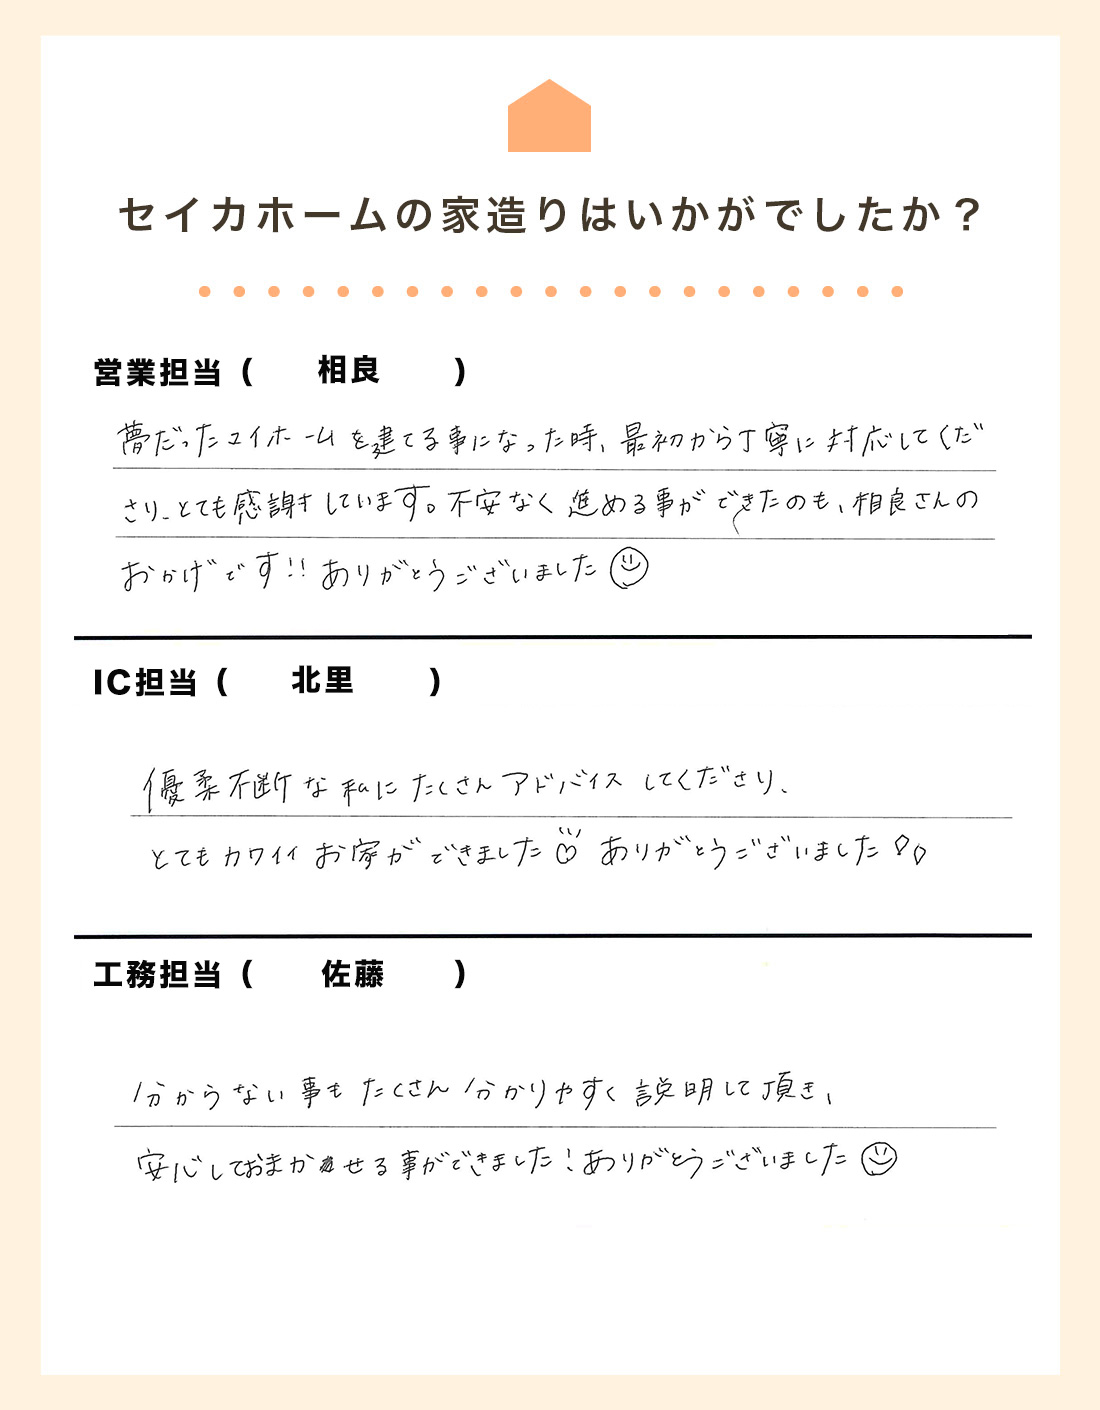 セイカホームの家造りはいかがでしたか？
営業担当（ 相良 ）
夢だったマイホームを建てる事になった時、最初から丁寧に対応してくだ
さり、とても感謝しています。不安なく進める事ができたのも、相良さんの
おかげです!! ありがとうございました
IC担当（ 北里 ）
優柔不断な私にたくさんアドバイスしてくださり、
とてもカワイイお家ができました ありがとうございました
工務担当（ 佐藤 ）
分からない事もたくさん分かりやすく説明して頂き、
安心しておまかせる事ができました！ありがとうございました